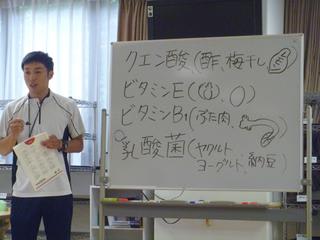 クエン酸(酢、梅干し
ビタミンE(
ビタミンB₁(ぶた肉、
乳酸菌(ヤクルト
ヨーグルト、納豆)